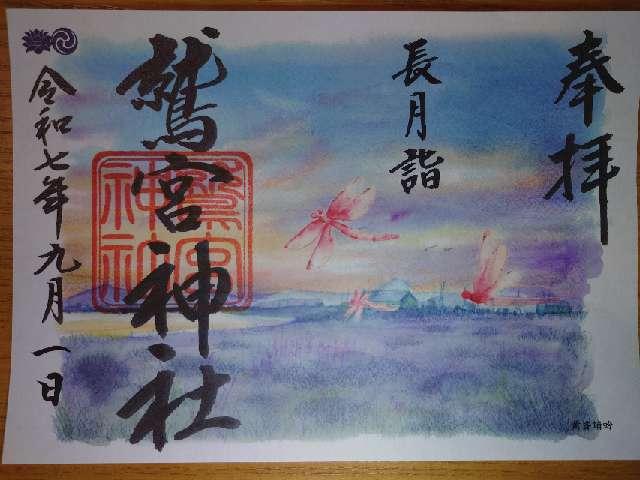 奉拝
長月詣
鷲宮神社
鷲宮
神社
令和七年九月一日